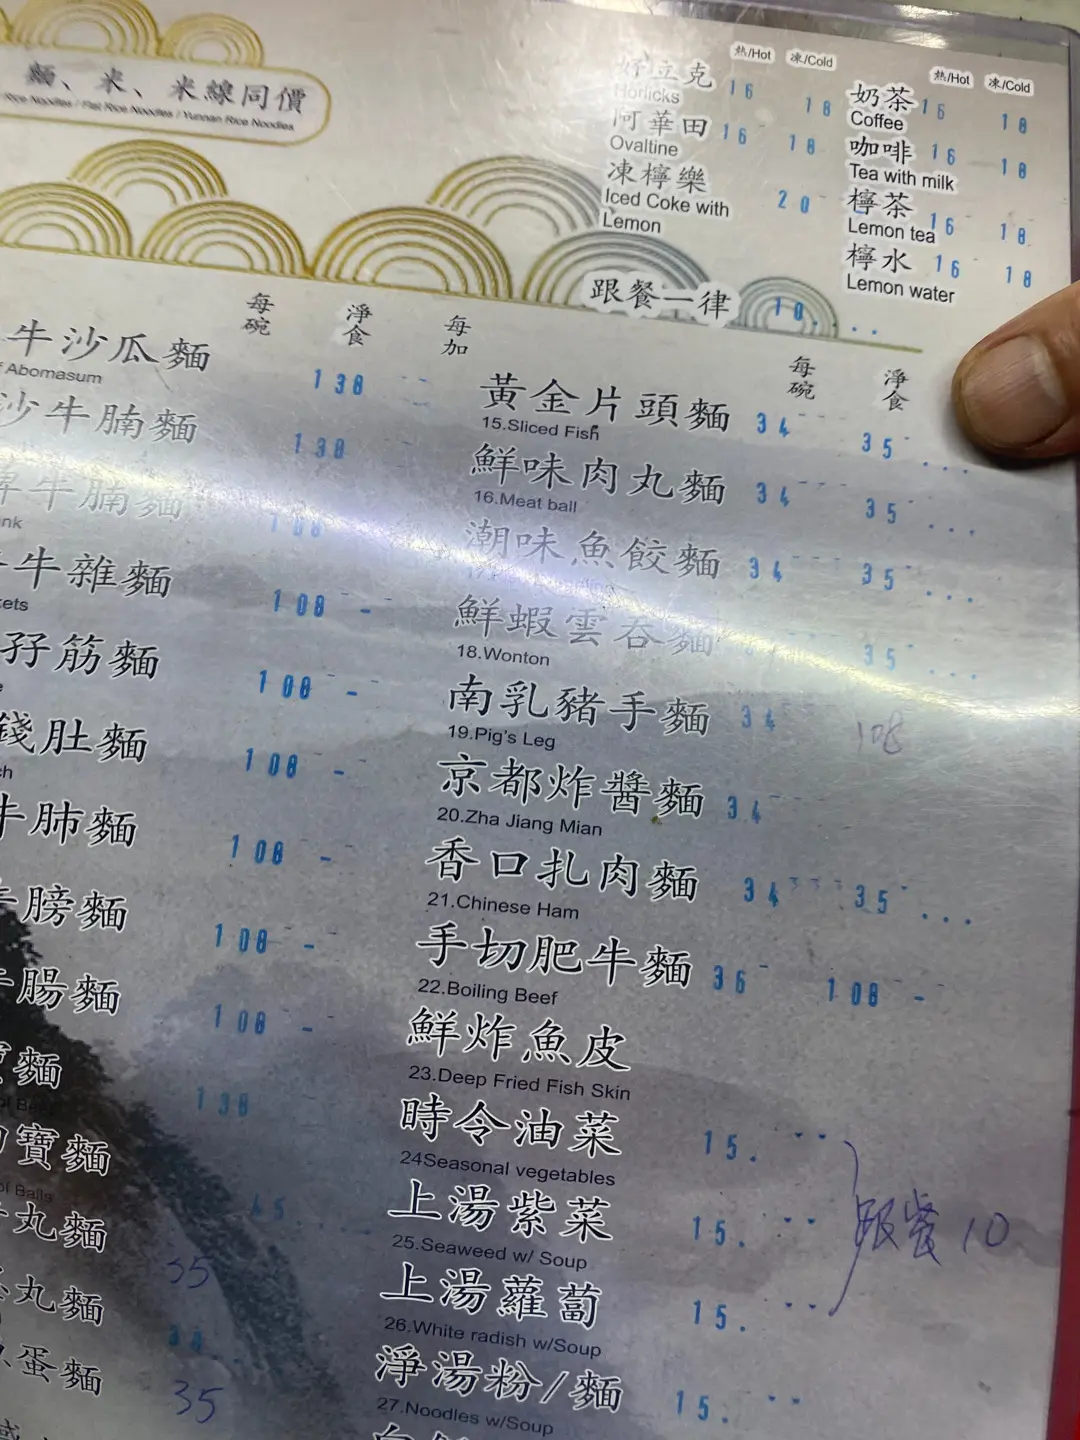 麵、米、米線同價
Rice Noodles / Flat Rice Noodles / Yunnan Rice Noodles
熱/Hot 凍/Cold
好立克 16 18
Horlicks
阿華田 16 18
Ovaltine
凍檸樂 20
Iced Coke with
Lemon
熱/Hot 凍/Cold
奶茶 16 18
Coffee
咖啡 16 18
Tea with milk
檸茶 16 18
Lemon tea
檸水 16 18
Lemon water
跟餐一律 10.
每碗 淨食 每加
牛沙瓜麵 138
Abomasum
沙牛腩麵 138
牛腩麵 108
牛雜麵 108 -
孖筋麵 108 -
錢肚麵 108 -
牛肺麵 108 -
膀麵 108 -
腸麵 108 -
麵 138
寶麵 45
of Balls
丸麵 35
丸麵 34
蛋麵 35
每碗 淨食
黃金片頭麵 34 35
15.Sliced Fish
鮮味肉丸麵 34 35
16.Meat ball
潮味魚餃麵 34 35
鮮蝦雲吞麵 35
18.Wonton
南乳豬手麵 34 108
19.Pig's Leg
京都炸醬麵 34
20.Zha Jiang Mian
香口扎肉麵 34 35
21.Chinese Ham
手切肥牛麵 36 108 -
22.Boiling Beef
鮮炸魚皮
23.Deep Fried Fish Skin
時令油菜 15.
24Seasonal vegetables
上湯紫菜 15.
25.Seaweed w/ Soup
跟餐 10
上湯蘿蔔 15.
26.White radish w/Soup
淨湯粉/麵 15.
27.Noodles w/Soup